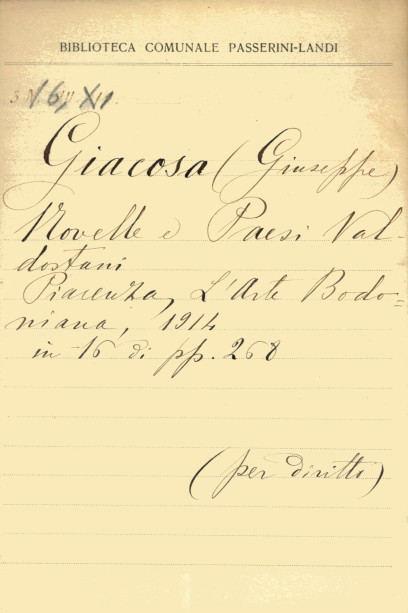 BIBLIOTECA COMUNALE PASSERINI-LANDI
6, XII
Giacosa (Giuseppe)
Novelle e Paesi Val-
dostani
Piacenza, L'Arte Bodo=
niana, 1914
in 16 di pp. 268
(per diritto)